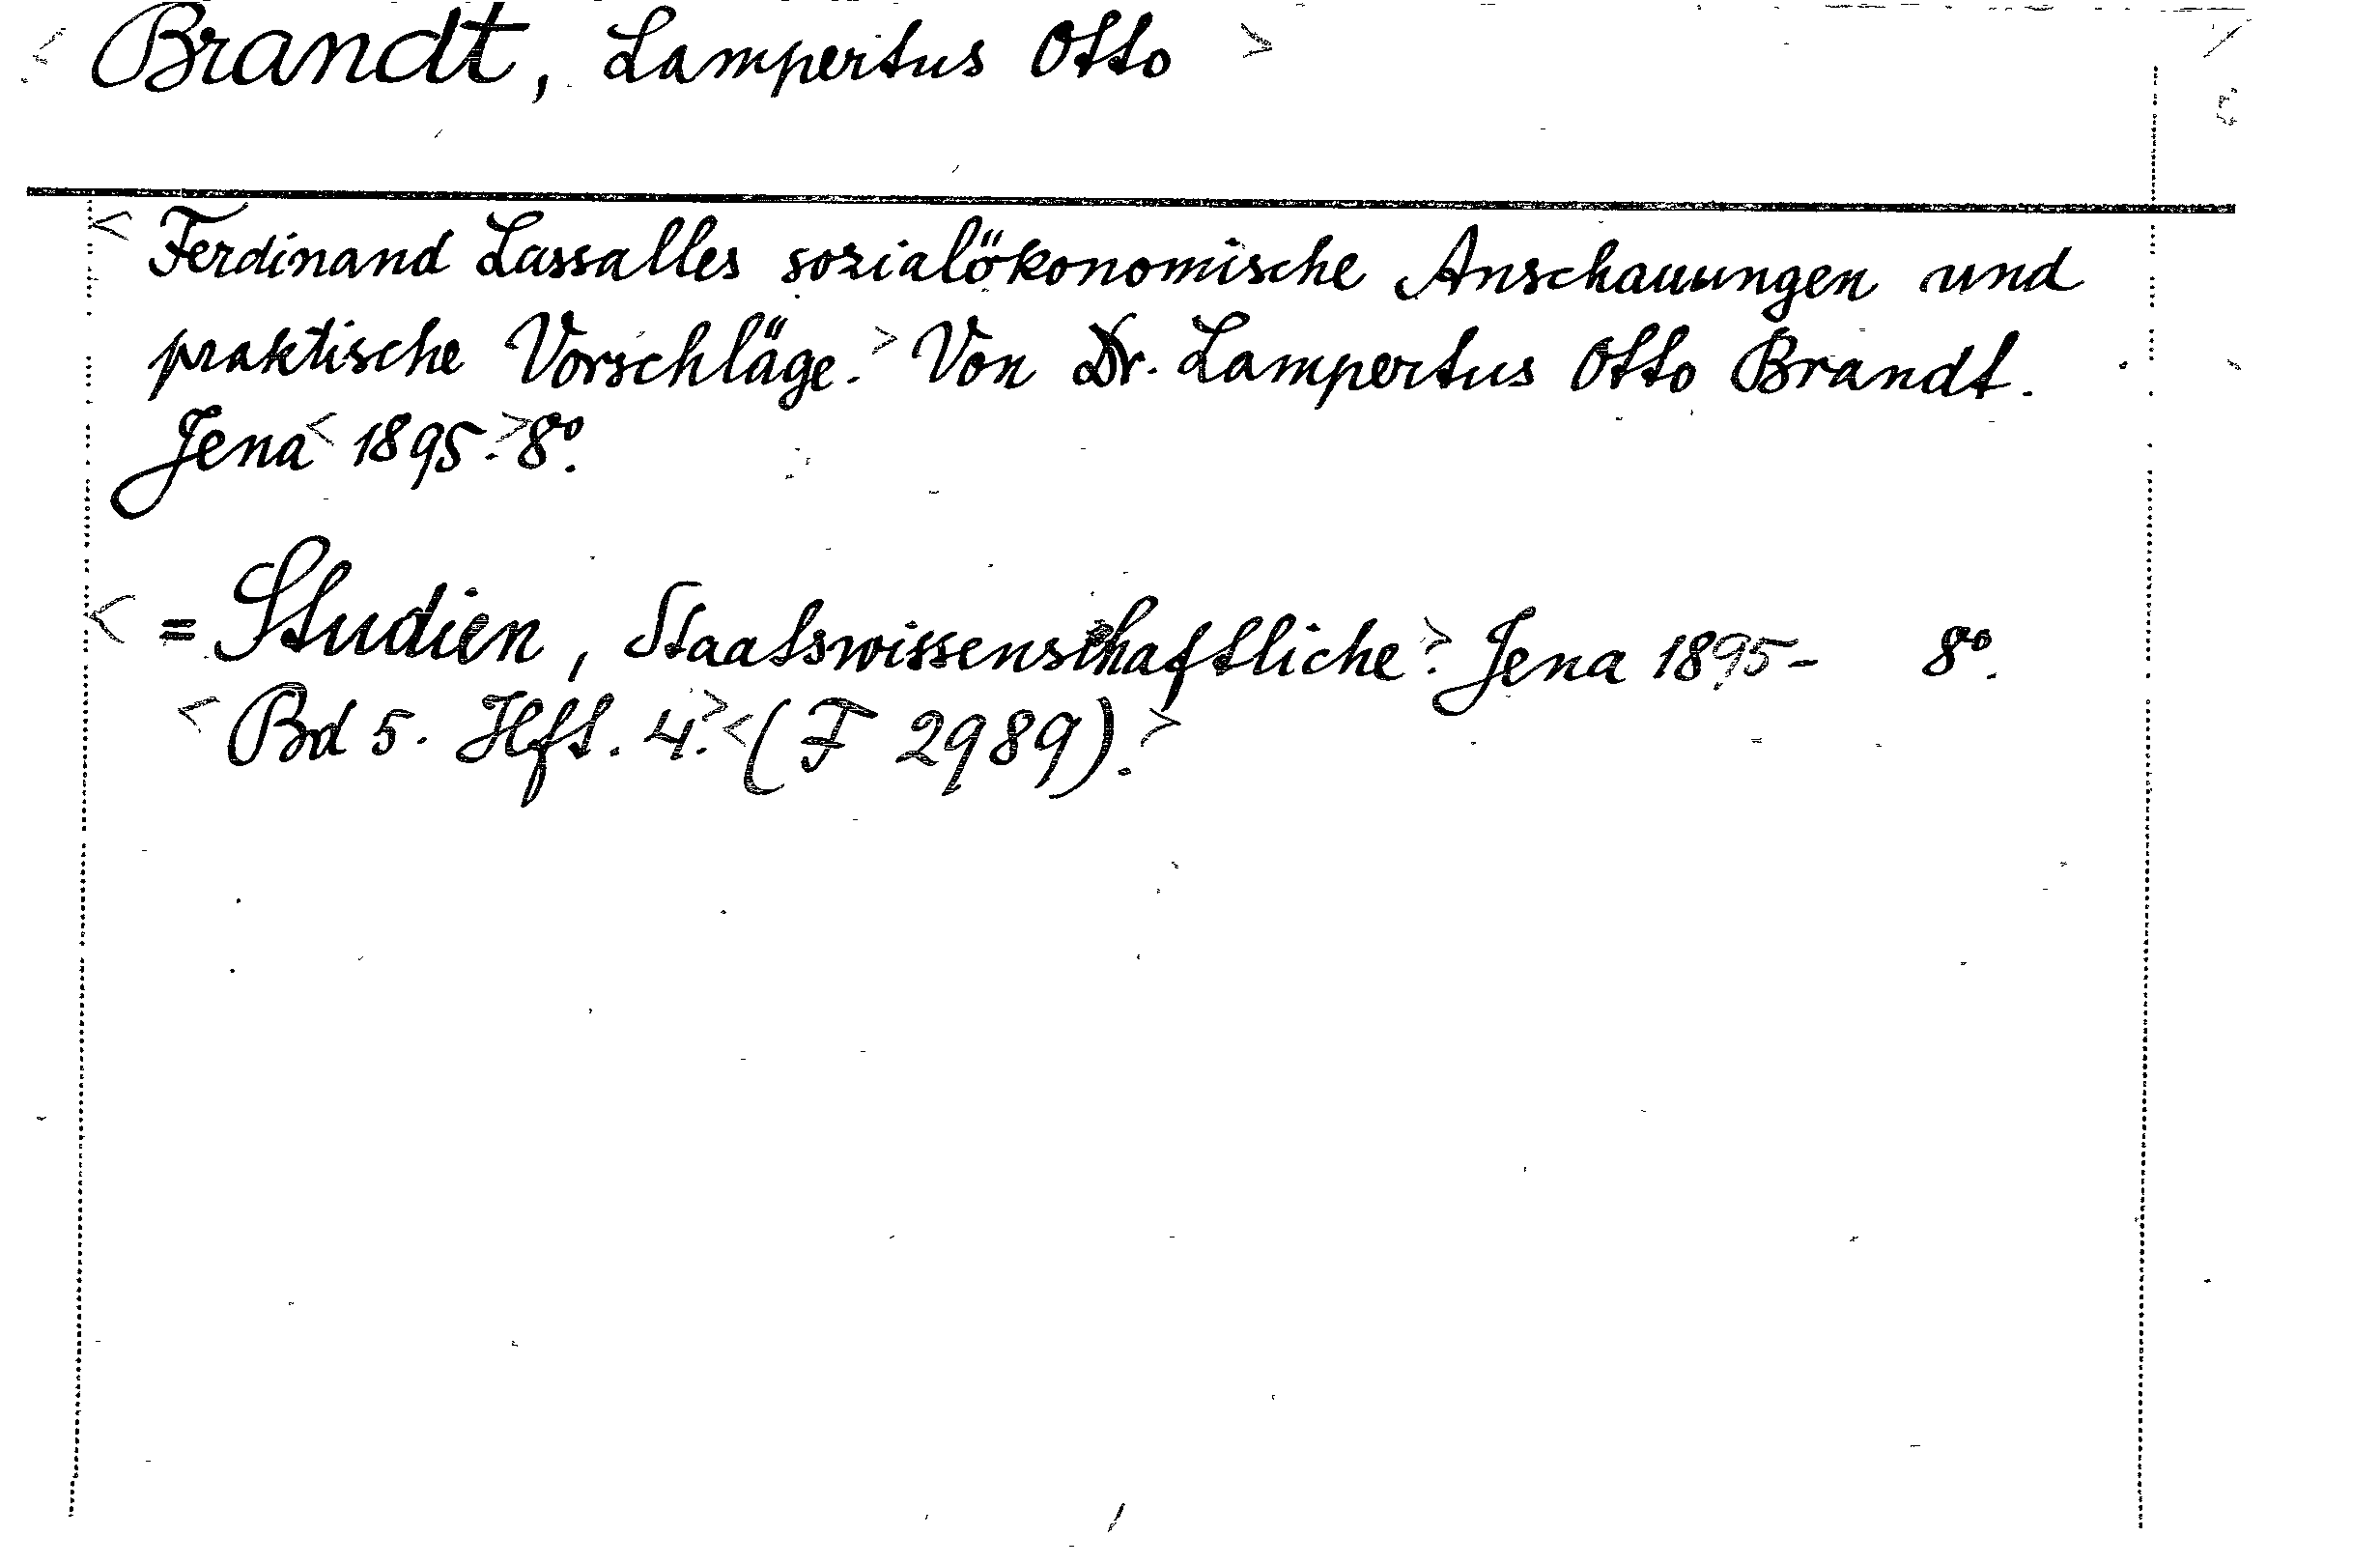 < Brandt, Lampertus Otto >
< Ferdinand Lassalles sozialökonomische Anschauungen und
praktische Vorschläge. > Von Dr. Lampertus Otto Brandt.
Jena < 1895. > 8°.
< = Studien, Staatswissenschaftliche. > Jena 1895- 8°.
< Bd 5. Hft. 4. > < (F 2989). >